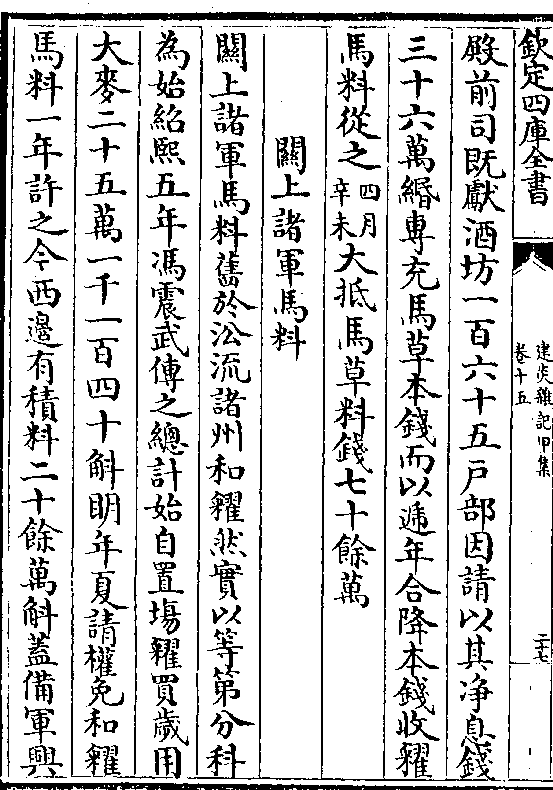 欽定四庫全書
建炎雜記甲集
卷十五
二十七
殿前司既獻酒坊一百六十五戸部因請以其净息錢
三十六萬緡專充馬草本錢而以遞年合降本錢收糴
馬料從之四月辛未大抵馬草料錢七十餘萬
關上諸軍馬料
關上諸軍馬料舊於㳂流諸州和糴然實以等第分科
為始紹熙五年馮震武傳之總計始自置塲糴買歲用
大麥二十五萬一千一百四十斛明年夏請權免和糴
馬料一年許之今西邊有積料二十餘萬斛蓋備軍興